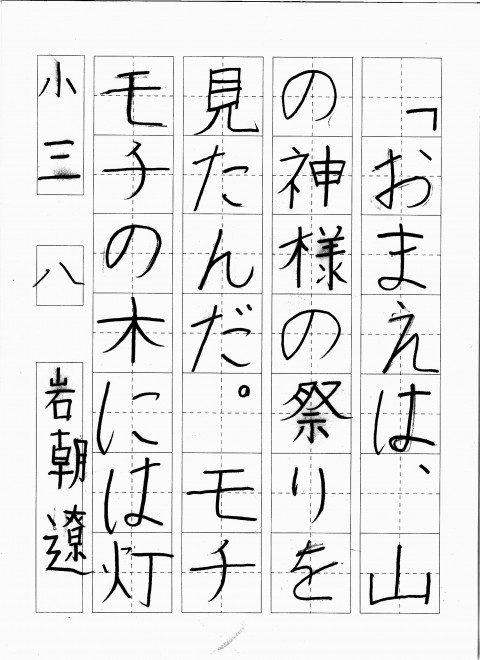 「おまえは、山
の神様の祭りを
見たんだ。モチ
モチの木には灯
小三 八 岩朝遼